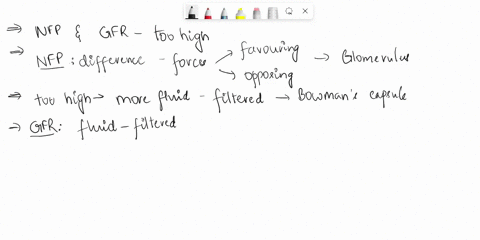 ⇒ NFP & GFR - too high
⇒ NFP : difference - forces → favouring → Glomerulus
→ opposing
⇒ too high → more fluid - filtered → Bowman's capsule
→ GFR : fluid - filtered